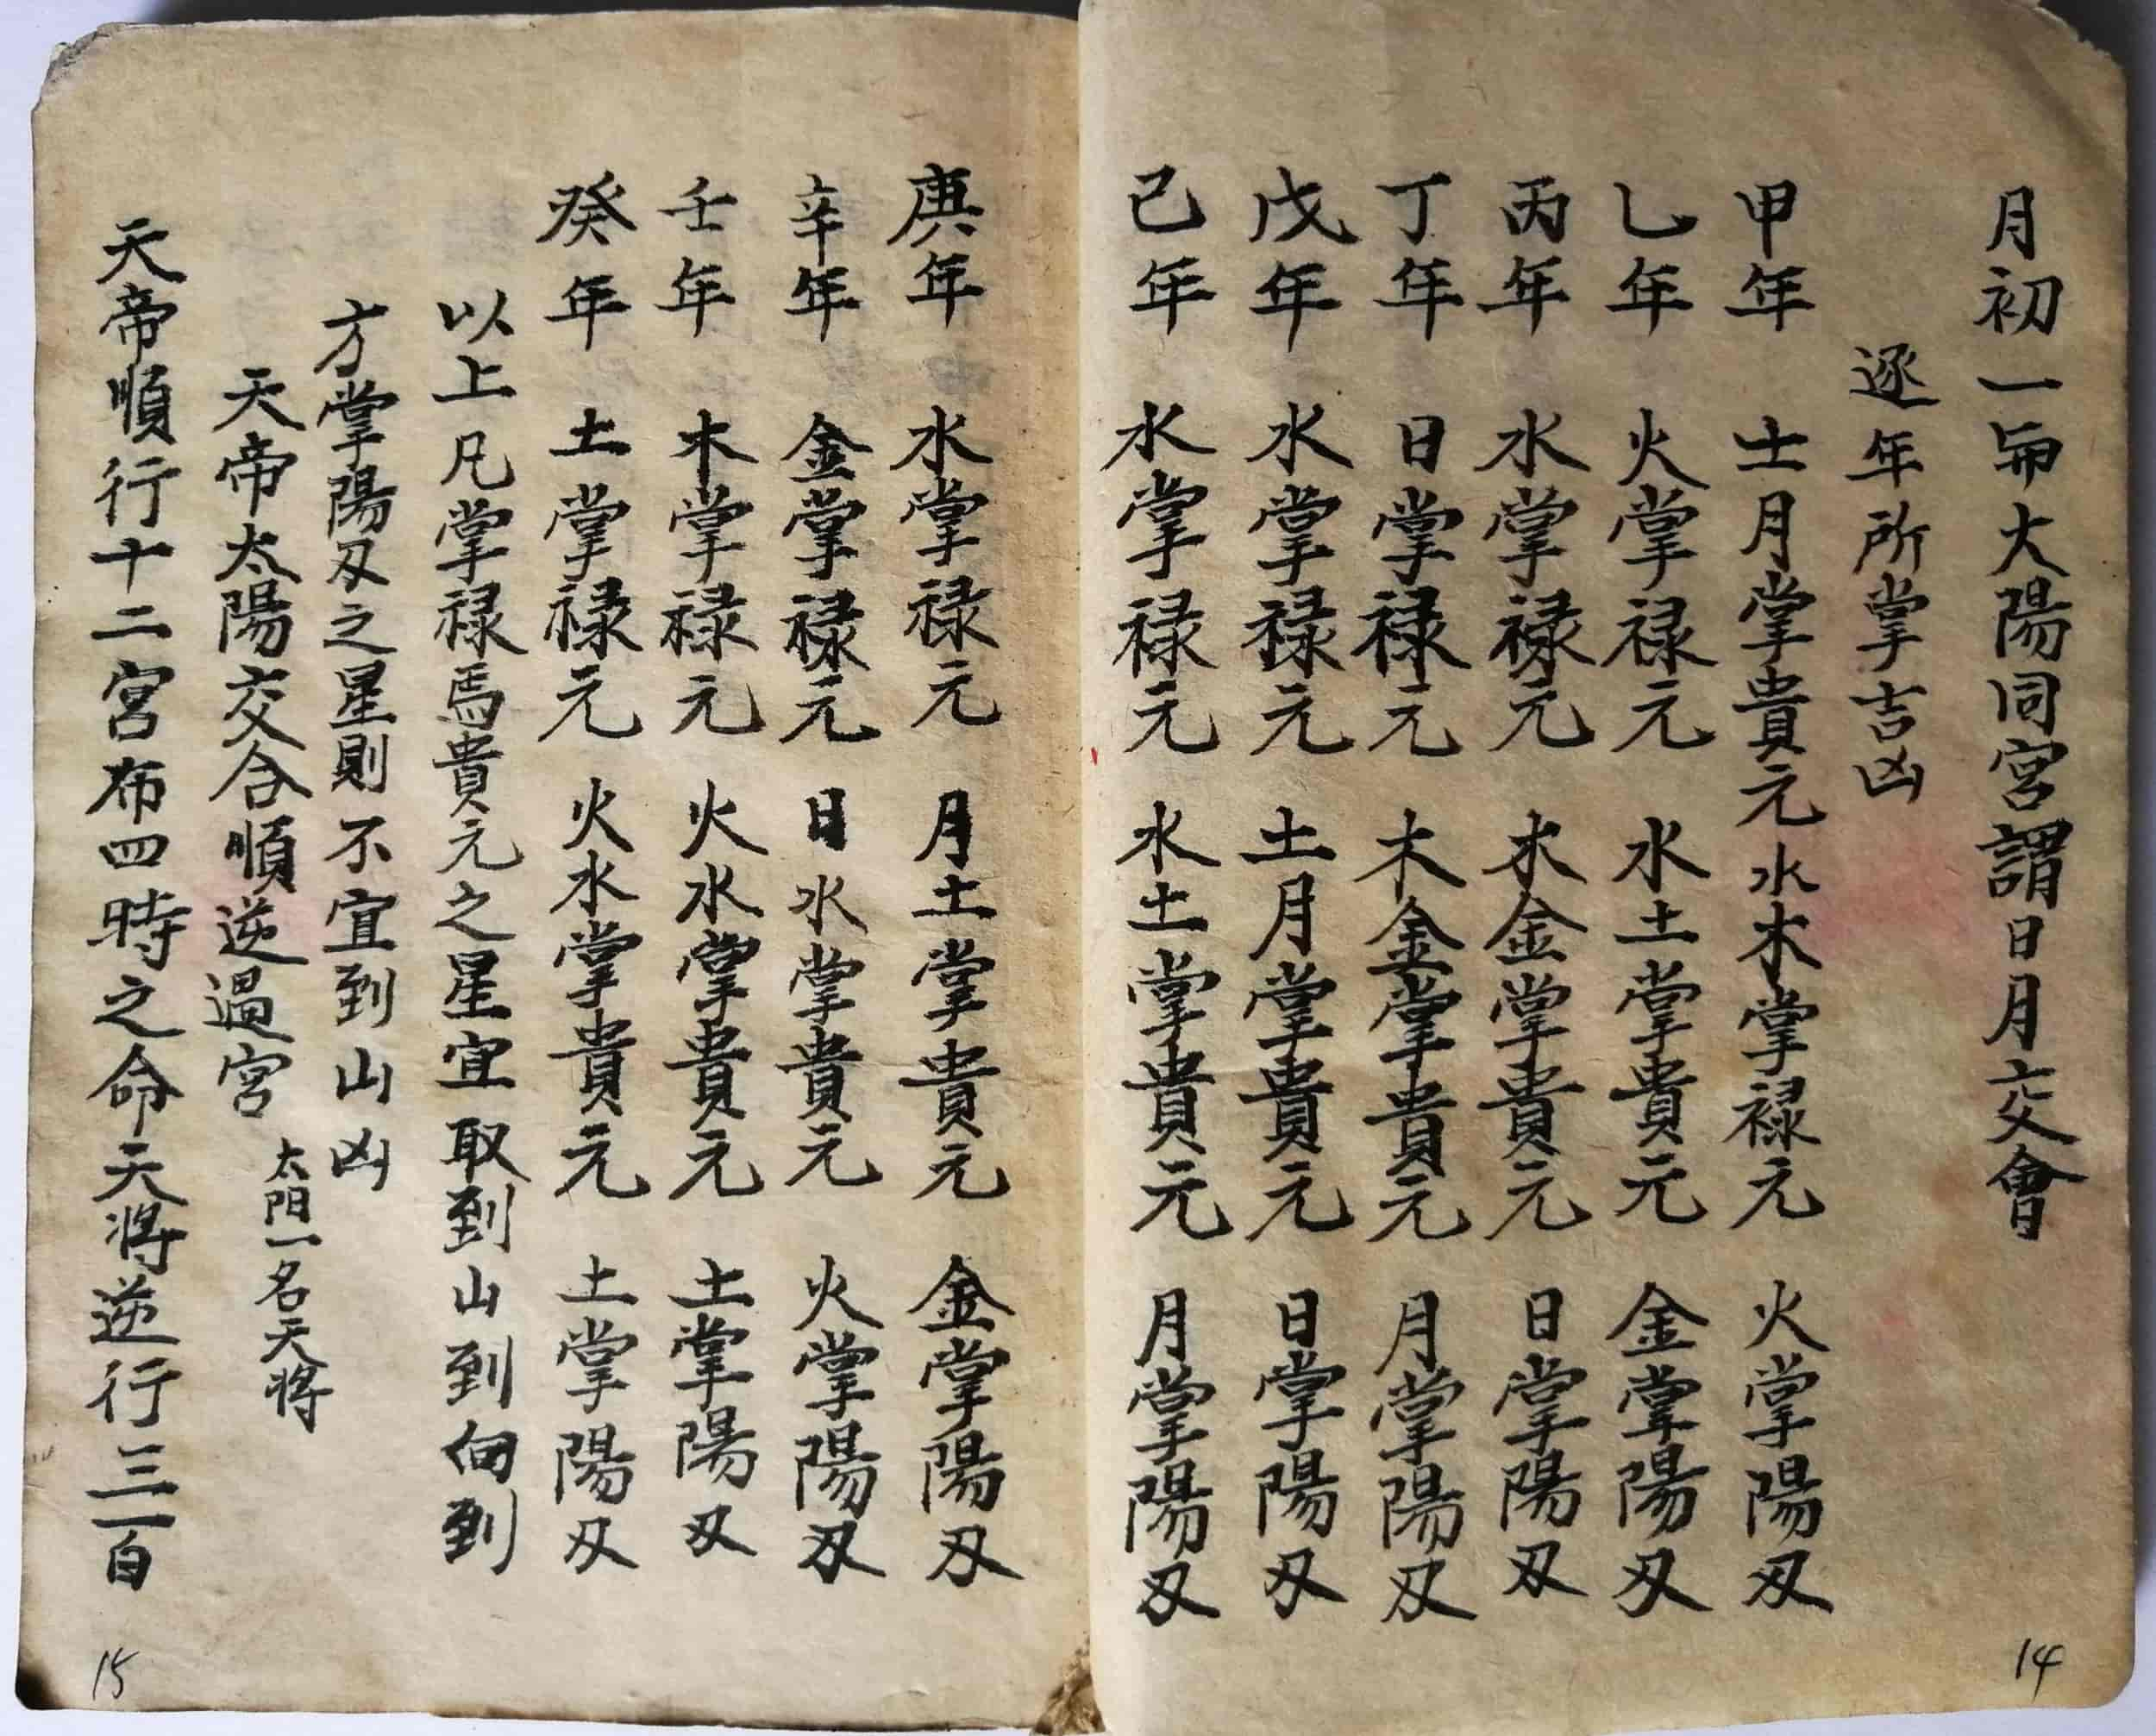 月初一帀大陽同宮謂日月交會
逐年所掌吉凶
甲年 士月掌貴元 水木掌禄元 火掌陽刄
乚年 火掌禄元 水土掌貴元 金掌陽刄
丙年 水掌禄元 木金掌貴元 日掌陽刄
丁年 日掌禄元 木金掌貴元 月掌陽刄
戊年 水掌禄元 土月掌貴元 日掌陽刄
己年 水掌禄元 水土掌貴元 月掌陽刄
14
庚年 水掌禄元 月土掌貴元 金掌陽刄
辛年 金掌禄元 日水掌貴元 火掌陽刄
壬年 木掌禄元 火水掌貴元 土掌陽刄
癸年 土掌禄元 火水掌貴元 土掌陽刄
以上凡掌禄馬貴元之星宜取到山到向到
方掌陽刄之星則不宜到山凶
天帝太陽交合順逆過宮 太陽一名天將
天帝順行十二宮布四時之命天將逆行三百
15